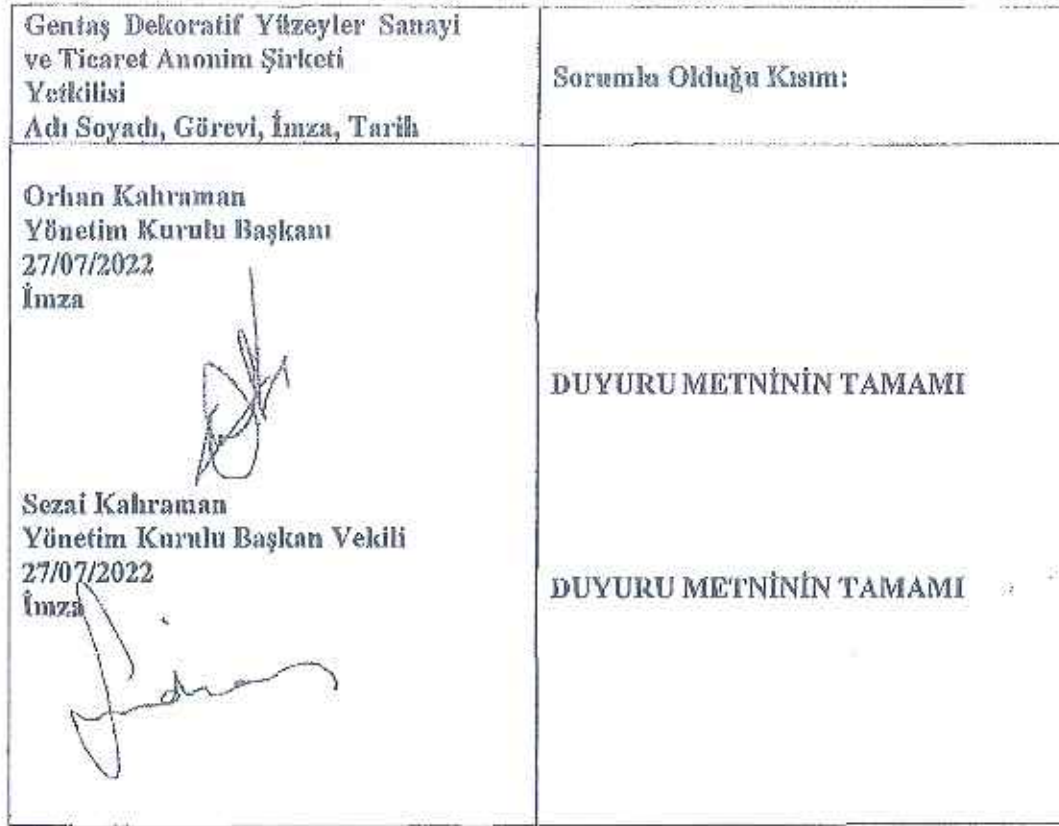 Gentaş Dekoratif Yüzeyler Sanayi
ve Ticaret Anonim Şirketi
Yetkilisi
Adı Soyadı, Görevi, İmza, Tarih
Sorumlu Olduğu Kısım:
Orhan Kahraman
Yönetim Kurulu Başkanı
27/07/2022
İmza
DUYURU METNİNİN TAMAMI
Sezai Kahraman
Yönetim Kurulu Başkan Vekili
27/07/2022
İmza
DUYURU METNİNİN TAMAMI